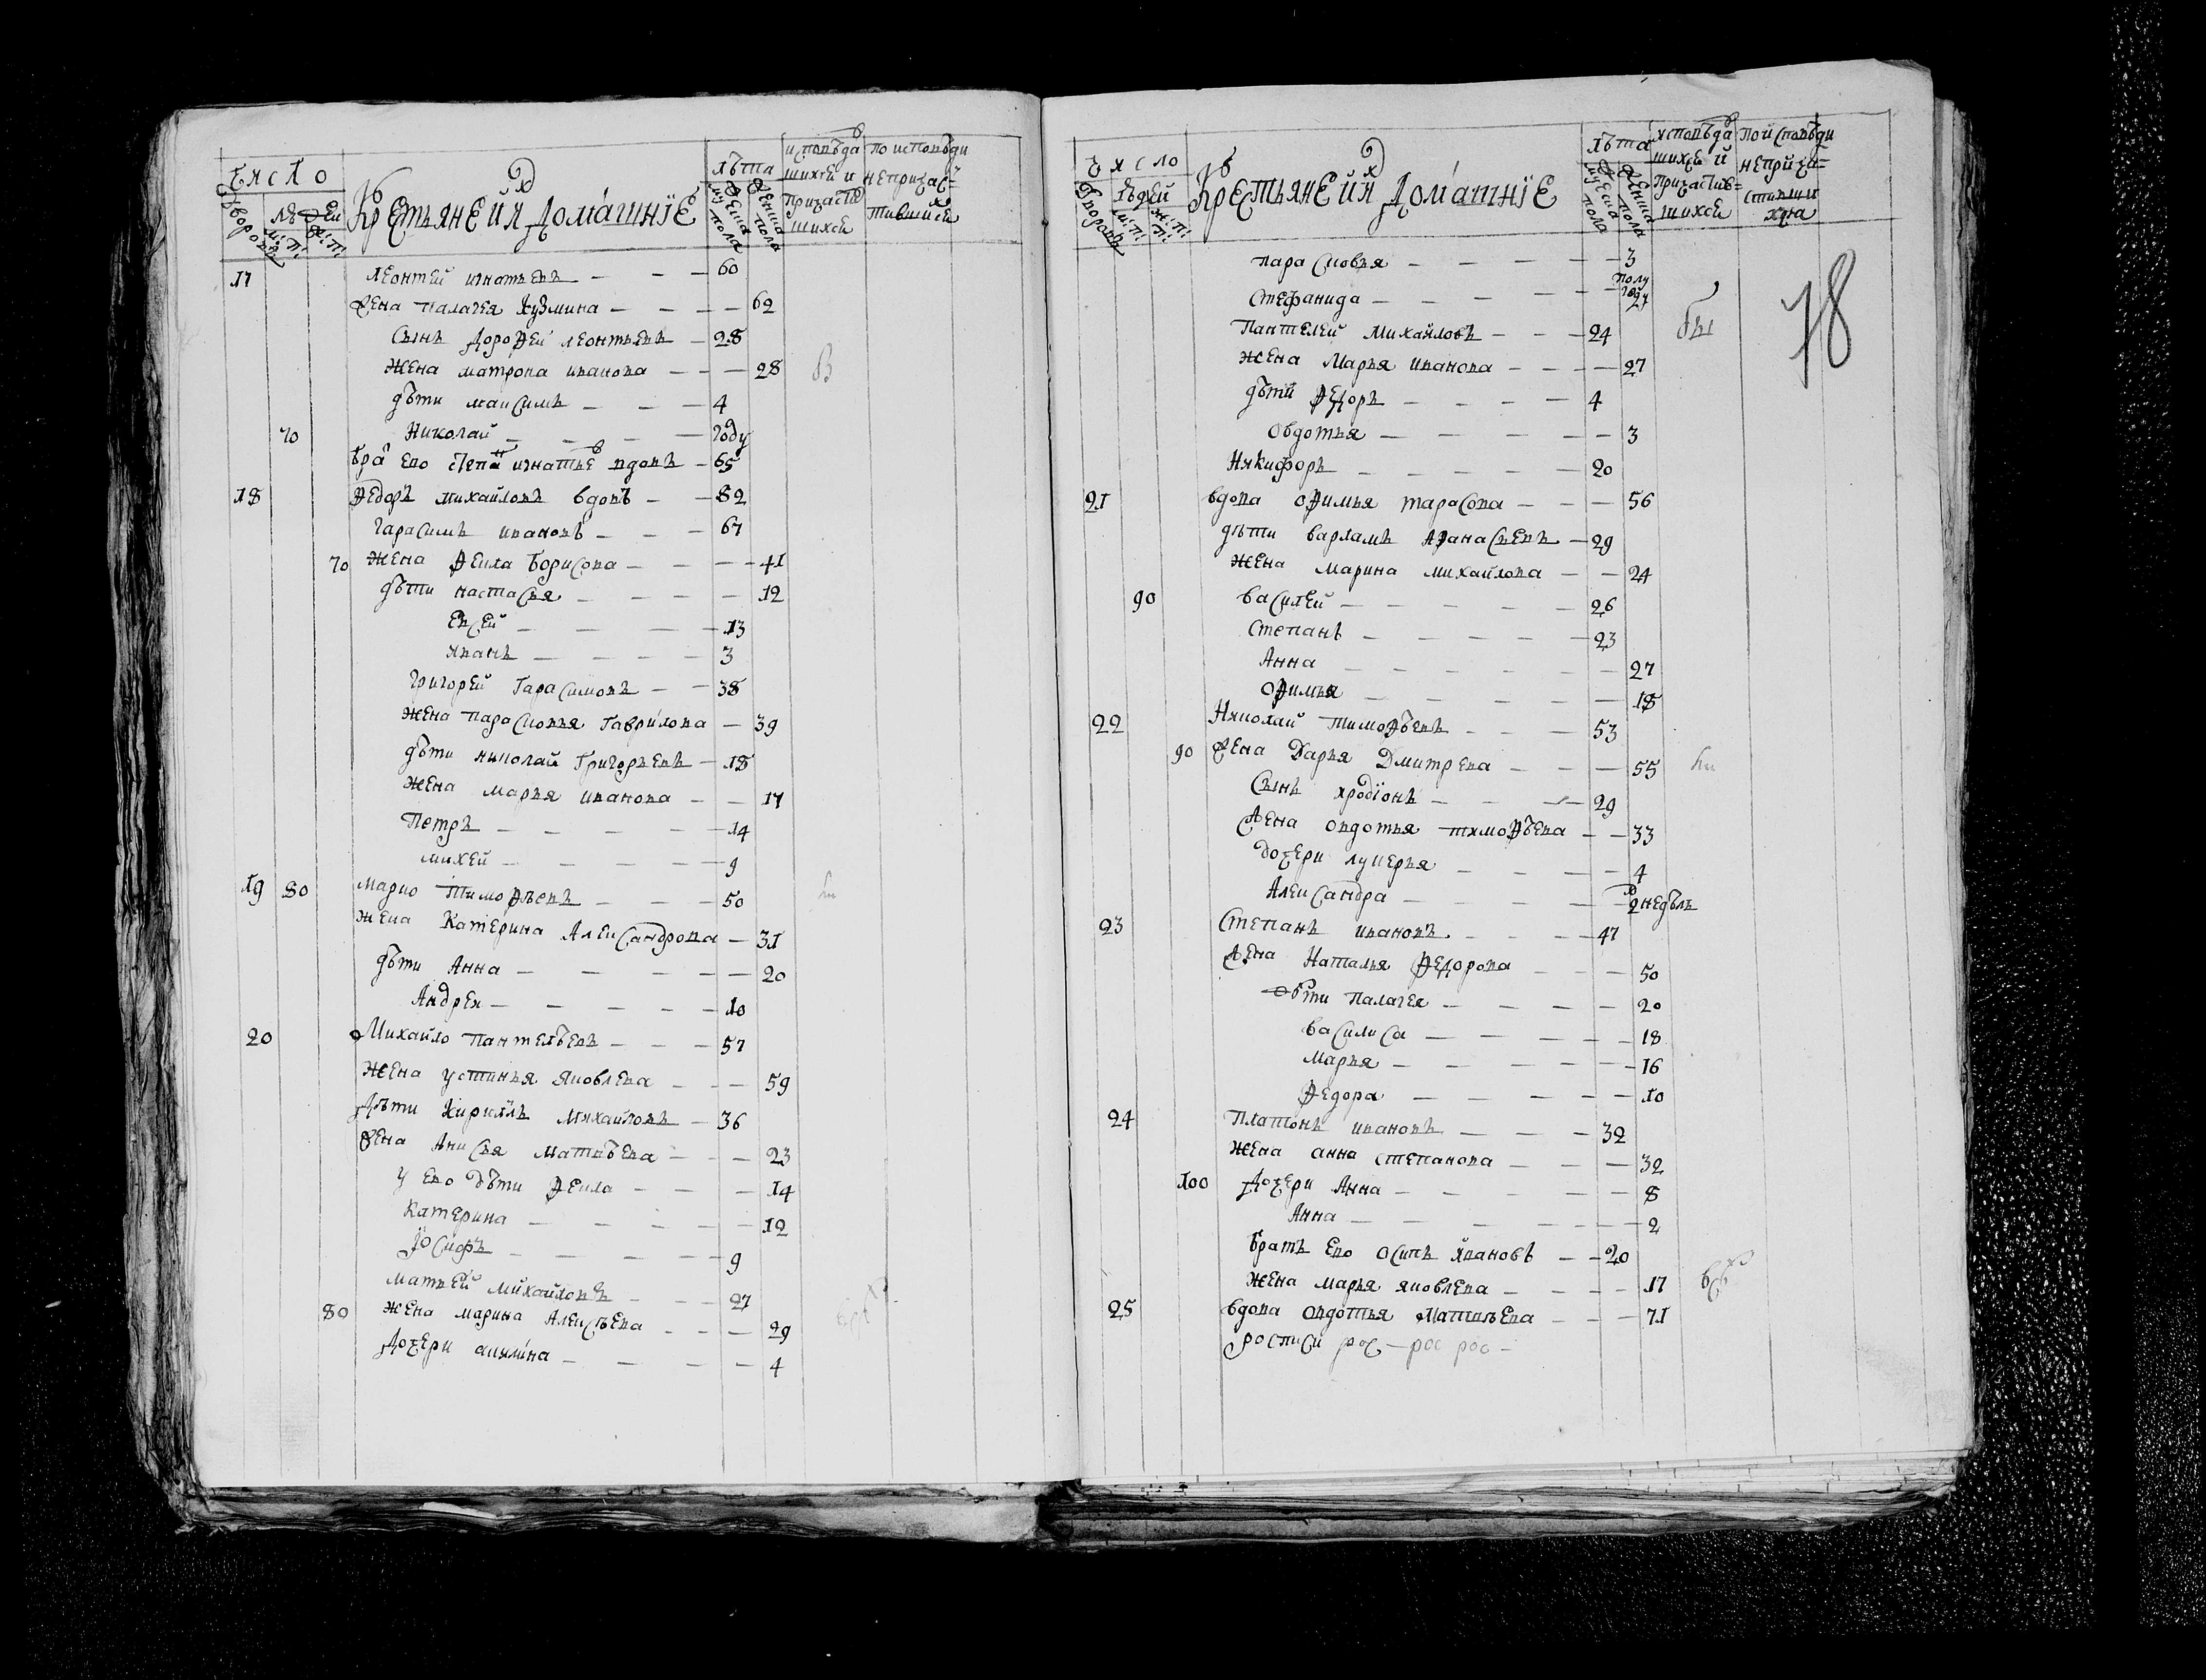 Число
Дворовъ
людей
м: п:
ж: п:
Крестьяне й ихъ домашнїе
лѣта
мужеска пола
женска пола
исповѣдавшихся и причастившихся
по исповѣди непричастившихся
17 Леонтей игнатьевъ — — — 60
жена палагея кузмина — — — 62
Сынъ дорофей леонтьевъ — 28
жена матрона иванова — — — 28
дѣти максимъ — — — 4
70 Николай — — — — году
бра его степан игнатьев вдовъ — 65
18 Федоръ михайловъ вдовъ — — 82
гарасимъ ивановъ — — — 67
70 жена Фекла борисова — — — 41
дѣти настасья — — — — 12
Евсей — — — — 13
иванъ — — — — 3
григорей гарасимовъ — — 38
жена парасковья гаврилова — 39
дѣти николай григорьевъ — 18
жена марья иванова — — 17
Петръ — — — — 14
михей — — — — 9
19 80 марко тимофѣевъ — — — 50
жена Катерина Александрова — 31
дѣти Анна — — — — 20
Андрей — — — — 10
20 Михайло пантелѣевъ — — — 57
жена устинья яковлева — — — 59
дѣти кирилъ михайловъ — 36
жена анисья матвѣева — — — 23
у его дѣти Фекла — — — 14
катерина — — — — 12
Їосифъ — — — — 9
матвей михайловъ — — — 27
80 жена марина алексѣева — — — 29
дочери акилина — — — — 4
Число
Дворовъ
людей
м: п:
ж: п:
Крестьяне й ихъ домашнїе
лѣта
мужеска пола
женска пола
исповѣдавшихся й причастившихся
по исповѣди непричастившихся
78
парасковья — — — — 3
Стефанида — — — — полугоду
Пантелей михайловъ — — — 24
жена марья иванова — — — — 27
дѣти Федоръ — — — — 4
Овдотья — — — — — 3
Никифоръ — — — — 20
21 вдова офимья тарасова — — — 56
дѣти варламъ афанасьевъ — 29
жена марина михайлова — — 24
90 василей — — — — 26
степанъ — — — — 23
Анна — — — — — 27
офимья — — — — 18
22 Николай тимофѣевъ — — — 53
90 жена Дарья Дмитрева — — — 55
Сынъ иродїонъ — — — 29
жена овдотья тимофѣева — — 33
дочери лукерья — — — — 4
Александра — — — — 2 недѣль
23 Степанъ ивановъ — — — 47
жена Наталья Федорова — — — 50
дѣти палагея — — — — 20
василиса — — — — 18
марья — — — — 16
Федора — — — — 10
24 Платонъ ивановъ — — — 32
жена анна степанова — — — 32
100 дочери Анна — — — — 8
Анна — — — — — 2
братъ его осипъ ивановъ — — 20
жена марья яковлева — — — — 17
25 вдова овдотья матвѣева — — — 71
росписи рос — рос рос —